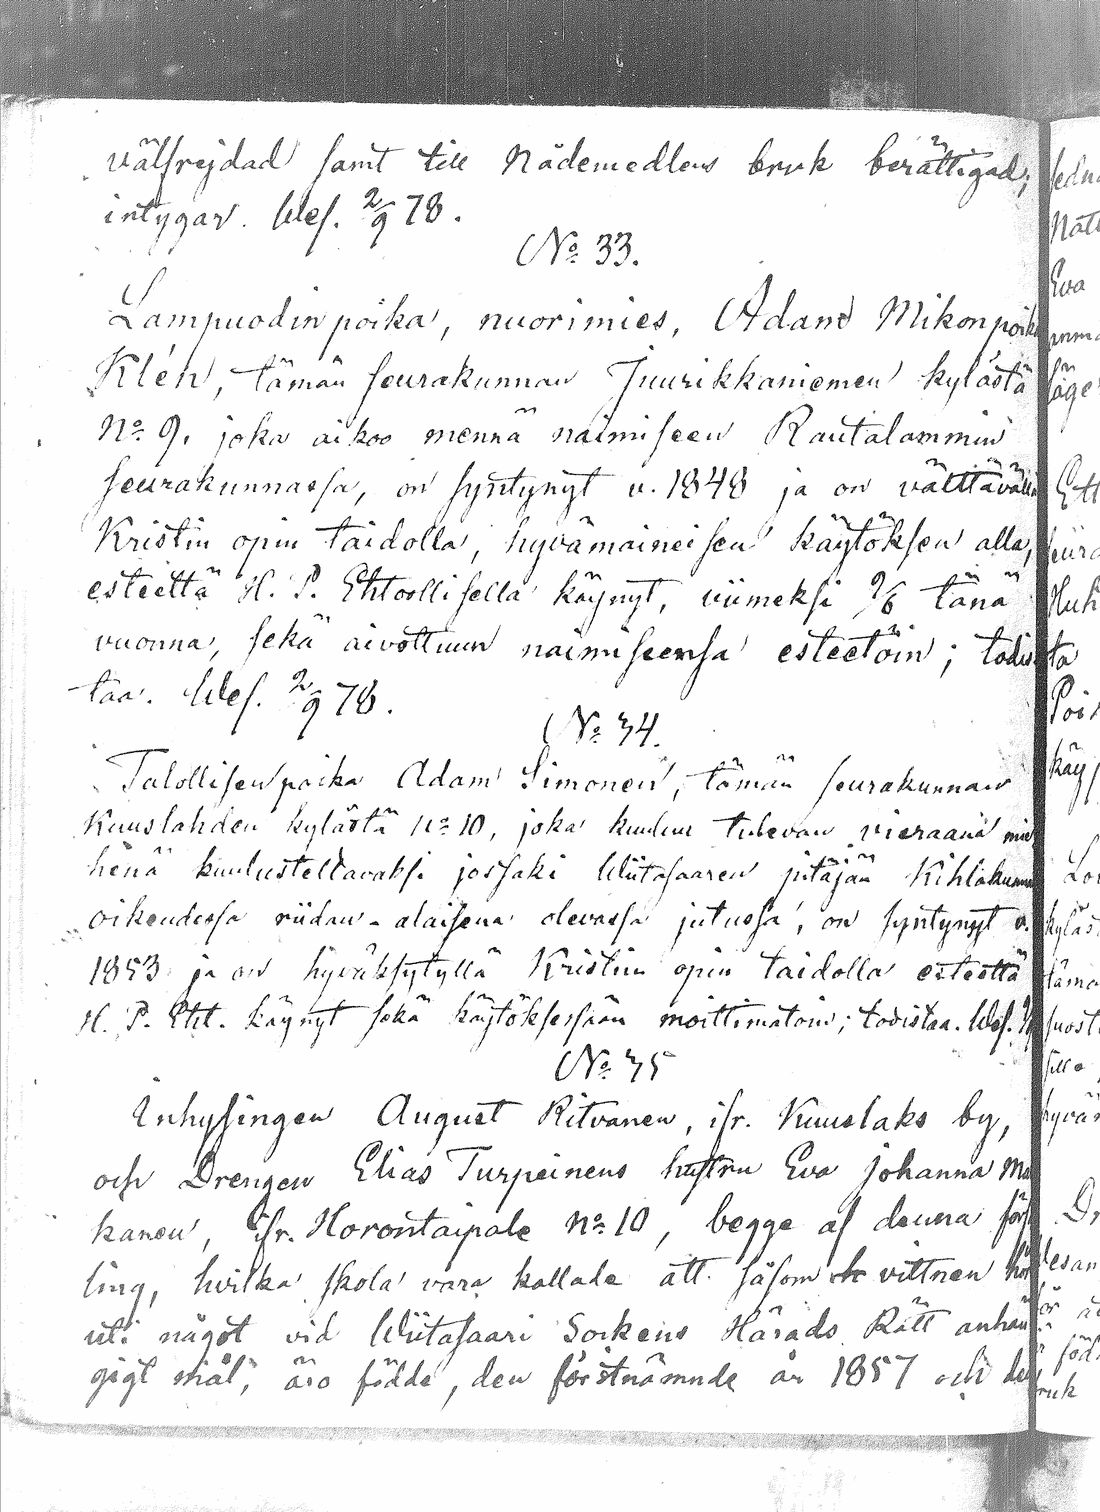 välfrejdad samt till Nådemedlens bruk berättigad;
intygar. Wes. 2/9 78.
No 33.
Lampuodinpoika, nuorimies, Adam Mikonpoika
Klén, tämän seurakunnan Juurikkaniemen kylästä
No 9, joka aikoo mennä naimiseen Rautalammin
seurakunnassa, on syntynyt v. 1848 ja on välttävällä
Kristin opin taidolla, hyvämaineisen käytöksen alla,
esteettä H. P. Ehtoollisella käynyt, viimeksi 9/6 tänä
vuonna, sekä aivottuun naimiseensa esteetöin; todis
taa. Wes. 2/9 78.
No 34.
Talollisenpoika Adam Simonen, tämän seurakunnan
Kuuslahden kylästä No 10, joka kuuluu tulevan vieraana mie
henä kuulusteltavaksi jossaki Wiitasaaren pitäjän Kihlakunnan
oikeudessa riidan-alaisena olevassa jutussa, on syntynyt v.
1853 ja on hyväksytyllä Kristin opin taidolla esteettä
H. P. Eht. käynyt sekä käytöksessään moittimatoin; todistaa. Wes.
No 35
Inhysingen August Ritvanen, ifr. Kuuslaks by,
och Drengen Elias Turpeinens hustru Eva Johanna Ma
kanen, ifr. Horontaipale No 10, begge af denna förs
ling, hvilka skola vara kallade att såsom vittnen hö
uti något vid Wiitasaari Sockens Härads Rätt anhän
gigt mål, äro födde, den förstnämnde år 1857 och den